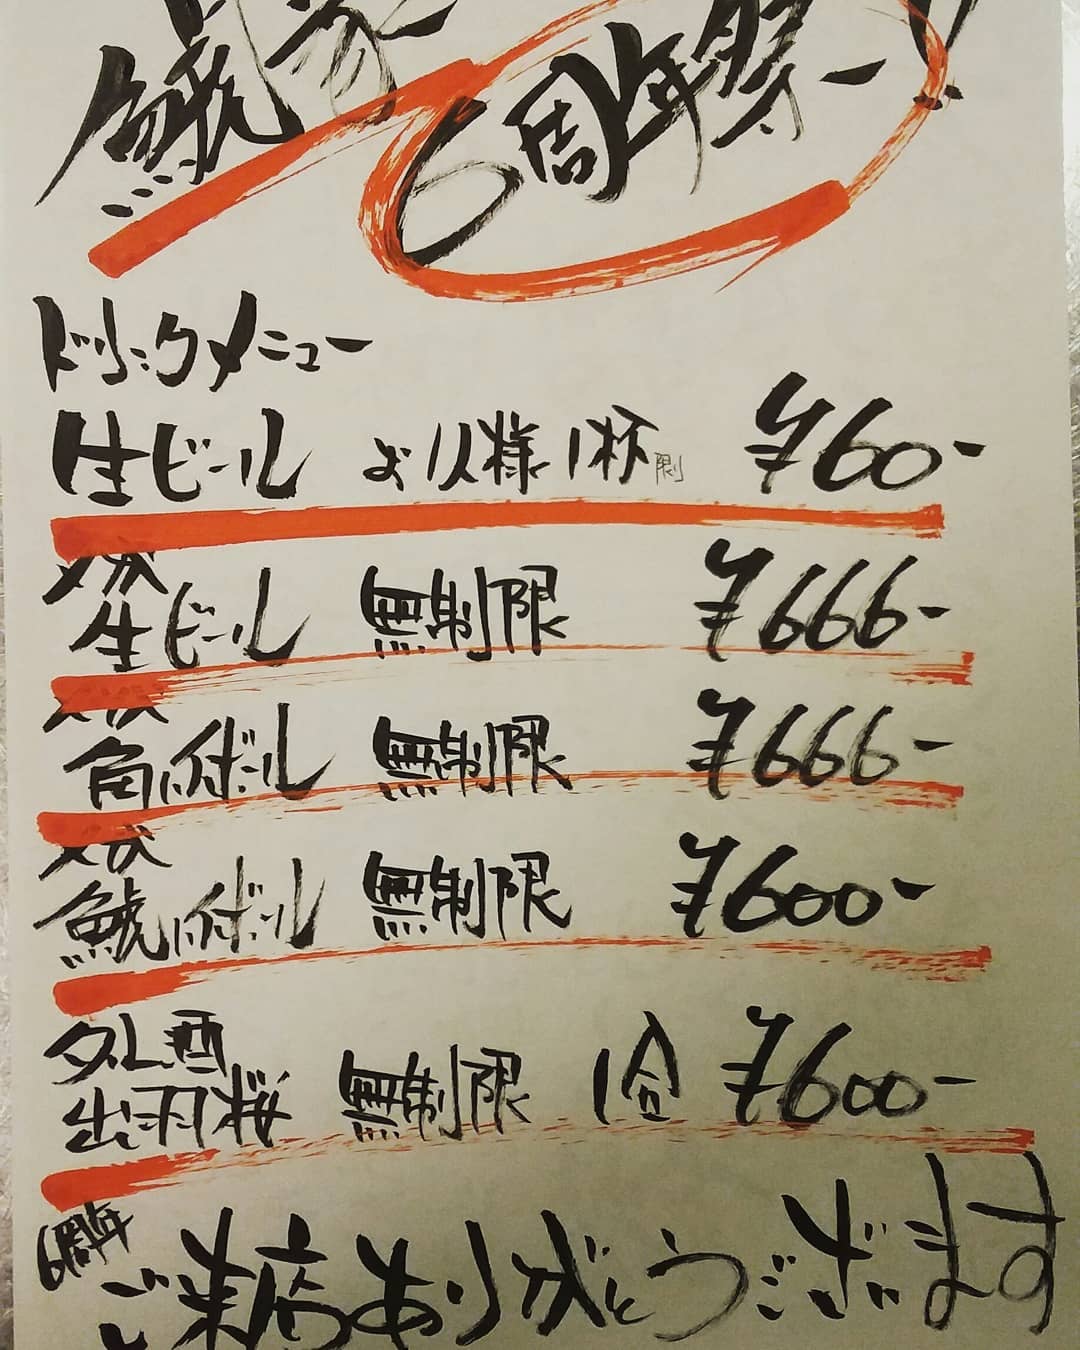 鯱家
6周年祭ー!!
ドリンクメニュー
生ビール お1人様1杯限り ¥60-
メガ
生ビール 無制限 ¥666-
メガ
角ハイボール 無制限 ¥666-
メガ
鯱ハイボール 無制限 ¥600-
タル酒
出羽桜 無制限 1合 ¥600-
6周年
ご来店ありがとうございます